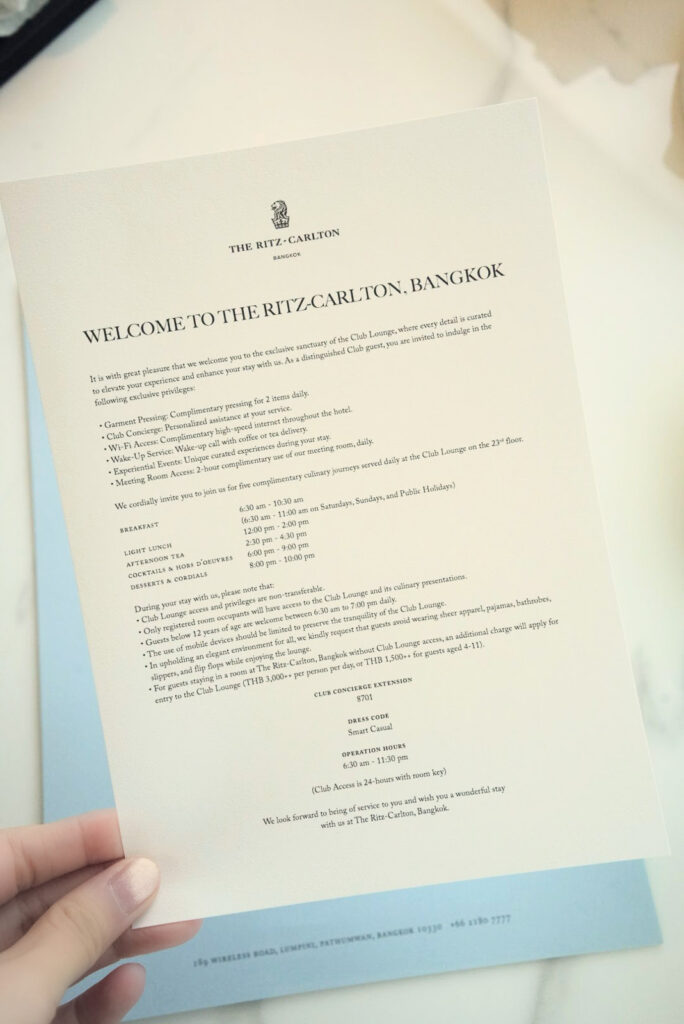 THE RITZ-CARLTON
BANGKOK
WELCOME TO THE RITZ-CARLTON, BANGKOK
It is with great pleasure that we welcome you to the exclusive sanctuary of the Club Lounge, where every detail is curated
to elevate your experience and enhance your stay with us. As a distinguished Club guest, you are invited to indulge in the
following exclusive privileges:
• Garment Pressing: Complimentary pressing for 2 items daily.
• Club Concierge: Personalized assistance at your service.
• Wi-Fi Access: Complimentary high-speed internet throughout the hotel.
• Wake-Up Service: Wake-up call with coffee or tea delivery.
• Experiential Events: Unique curated experiences during your stay.
• Meeting Room Access: 2-hour complimentary use of our meeting room, daily.
We cordially invite you to join us for five complimentary culinary journeys served daily at the Club Lounge on the 23rd floor.
BREAKFAST 6:30 am - 10:30 am
(6:30 am - 11:00 am on Saturdays, Sundays, and Public Holidays)
LIGHT LUNCH 12:00 pm - 2:00 pm
AFTERNOON TEA 2:30 pm - 4:30 pm
COCKTAILS & HORS D'OEUVRES 6:00 pm - 9:00 pm
DESSERTS & CORDIALS 8:00 pm - 10:00 pm
During your stay with us, please note that:
• Club Lounge access and privileges are non-transferable.
• Only registered room occupants will have access to the Club Lounge and its culinary presentations.
• Guests below 12 years of age are welcome between 6:30 am to 7:00 pm daily.
• The use of mobile devices should be limited to preserve the tranquility of the Club Lounge.
• In upholding an elegant environment for all, we kindly request that guests avoid wearing sheer apparel, pajamas, bathrobes,
slippers, and flip flops while enjoying the lounge.
• For guests staying in a room at The Ritz-Carlton, Bangkok without Club Lounge access, an additional charge will apply for
entry to the Club Lounge (THB 3,000++ per person per day, or THB 1,500++ for guests aged 4-11).
CLUB CONCIERGE EXTENSION
8701
DRESS CODE
Smart Casual
OPERATION HOURS
6:30 am - 11:30 pm
(Club Access is 24-hours with room key)
We look forward to being of service to you and wish you a wonderful stay
with us at The Ritz-Carlton, Bangkok.
189 WIRELESS ROAD, LUMPINI, PATHUMWAN, BANGKOK 10330 +66 2180 7777